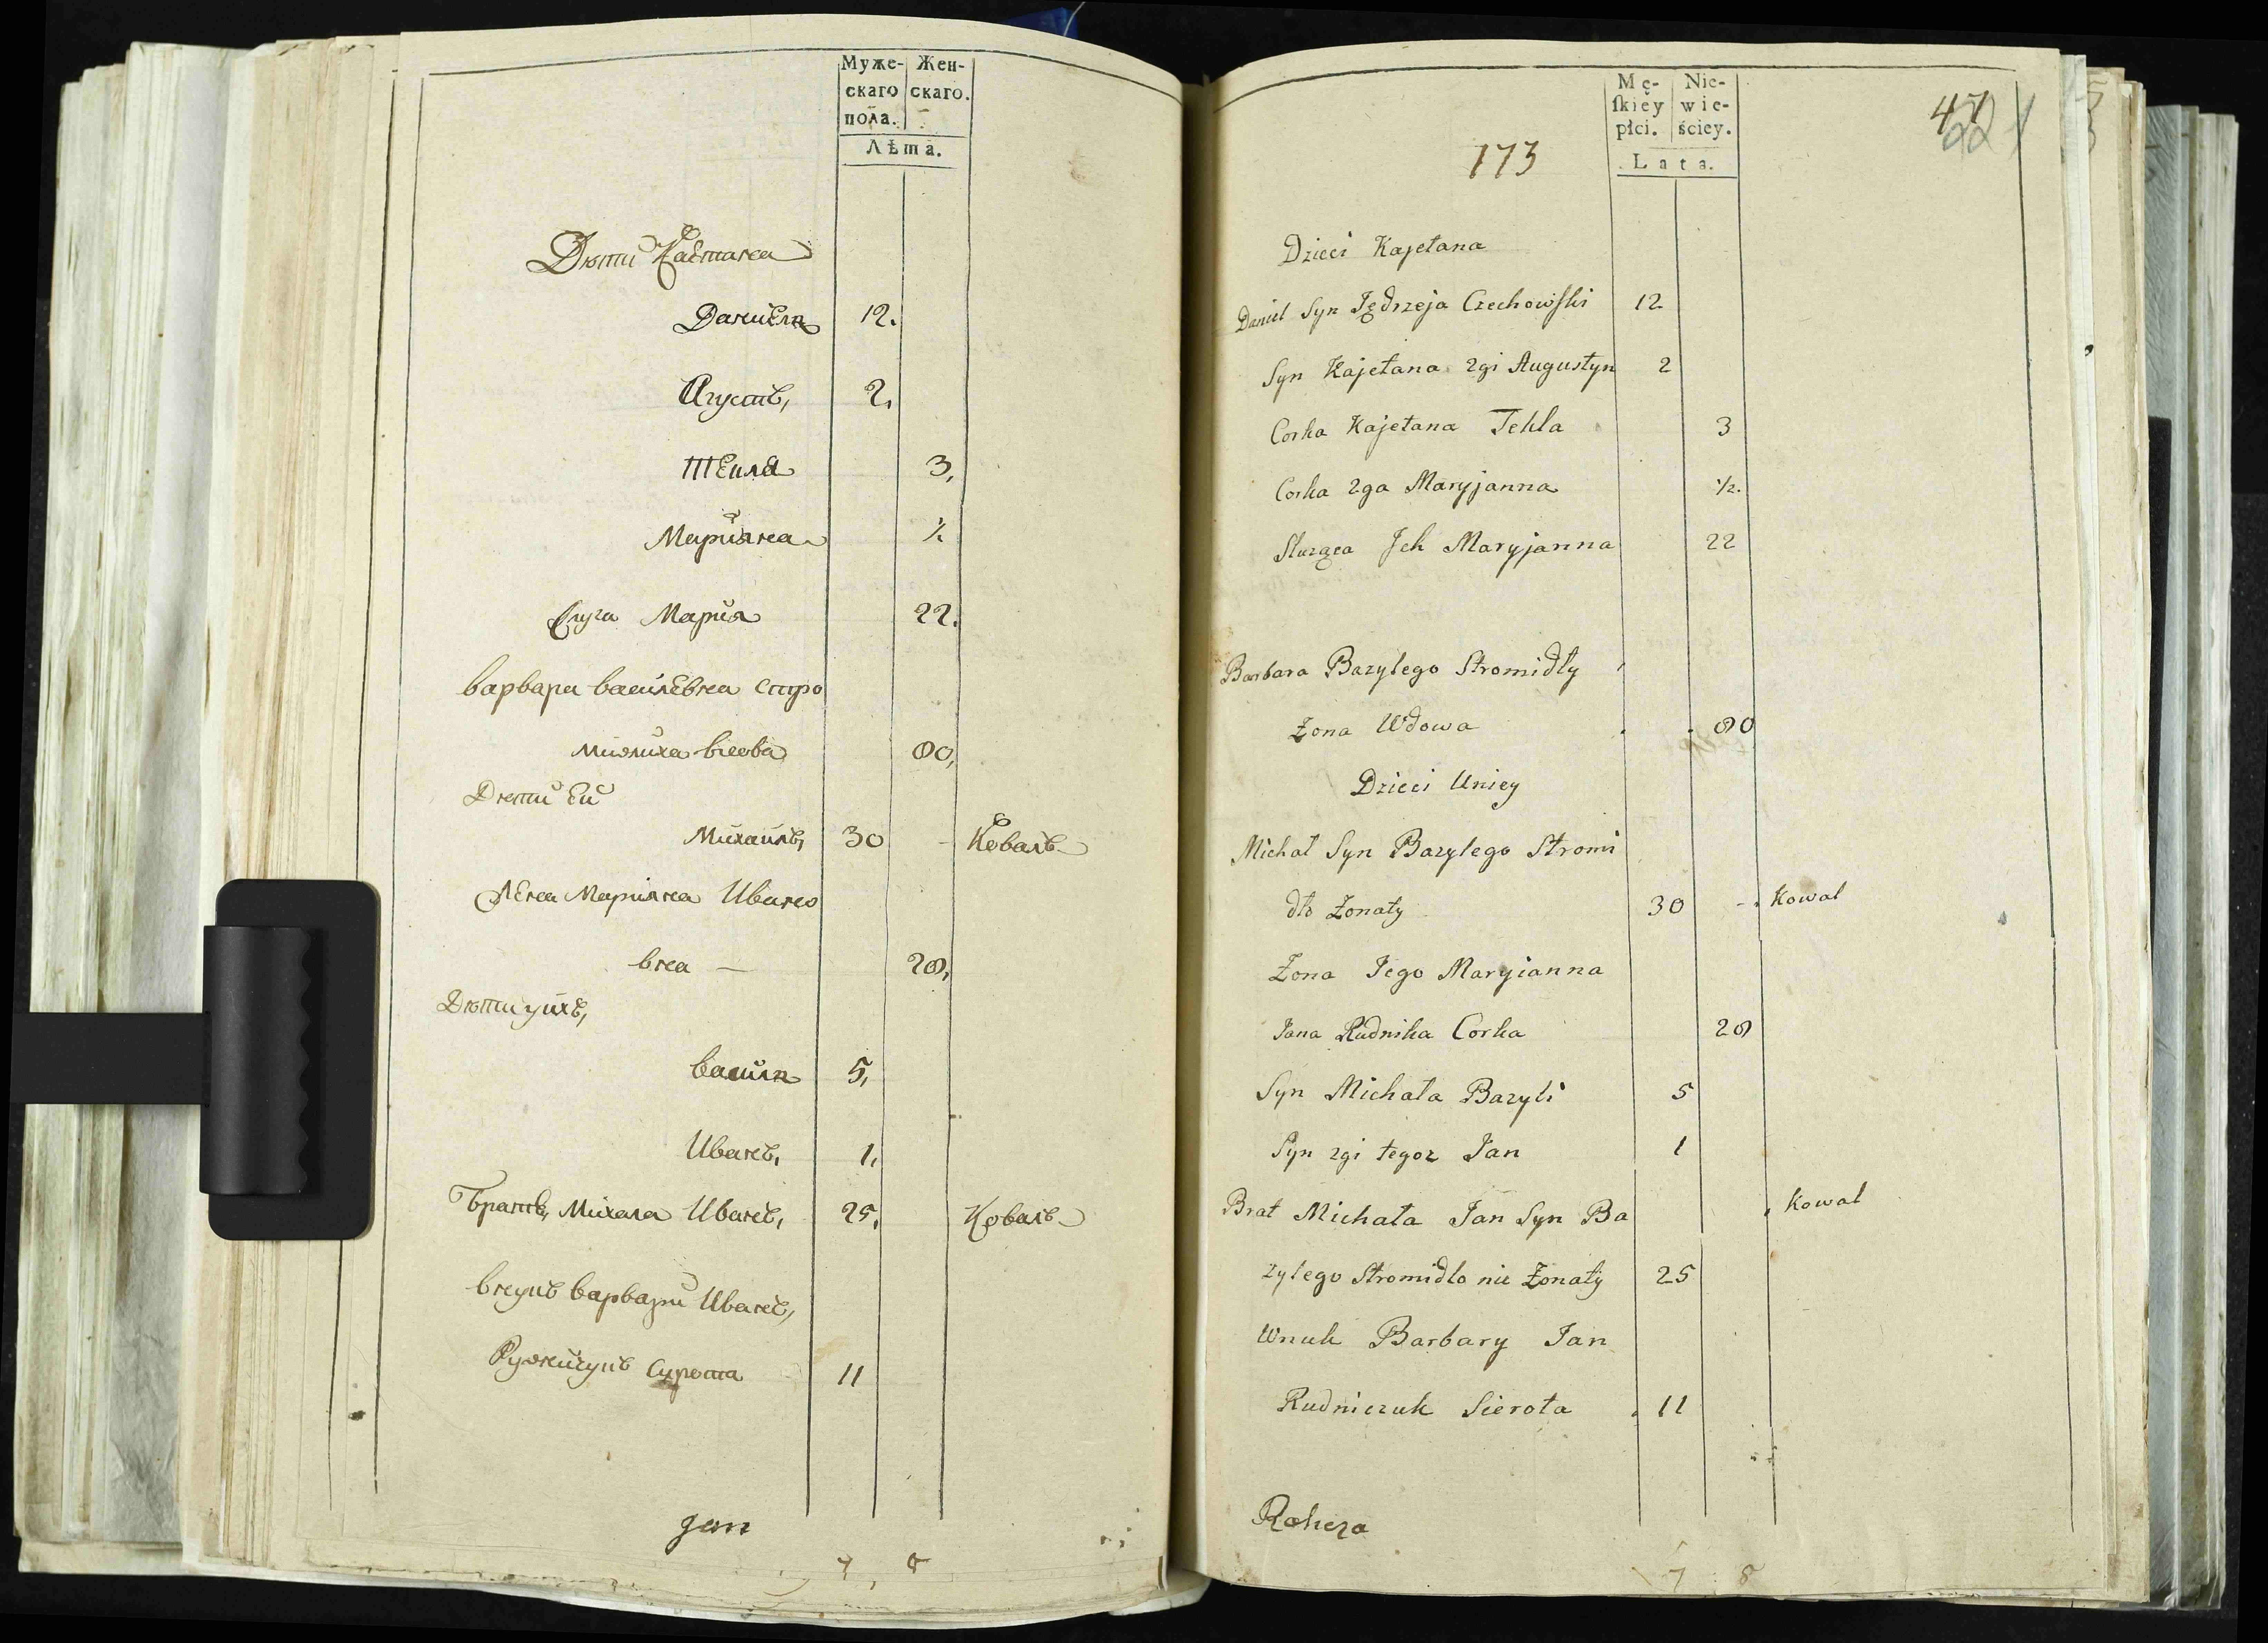 Муже- Жен-
скаго скаго.
пола.
Лѣта.
Дѣти Каетана
Даниела 12.
Агустъ, 2,
Текля 3,
Марияна ½
Слуга Мария 22.
варвара василевна стро
мидлиха вдова 80,
Дѣти Ей
Михаилъ, 30 - Коваль
Жена Марияна Ивано
вна — 28,
Дѣти ухъ,
василь 5,
Иванъ, 1,
братъ, Михала Иванъ, 25, Коваль
внукъ варвари Иванъ,
Рудничукъ Сирота 11
Jan
7, 8
Mę- Nie-
ſkiéy wie-
płci. ściey.
Lata.
173
Dzieci Kajetana
Daniel Syn Jędrzeja Czechowſki 12
Syn Kajetana 2gi Augustyn 2
Corka Kajetana Tekla 3
Corka 2ga Maryjanna ½.
Sluząca Jch Maryjanna 22
Barbara Bazylego Stromidły
Zona Wdowa 80
Dzieci Uniey
Michał Syn Bazylego Stromi
dło Zonaty 30 - Kowal
Zona Jego Maryianna
Jana Rudnika Corka 28
Syn Michała Bazyli 5
Syn 2gi tegoz Jan 1
Brat Michała Jan Syn Ba Kowal
zylego Stromidlo nie Zonaty 25
Wnuk Barbary Jan
Rudniczuk Sierota 11
7 8